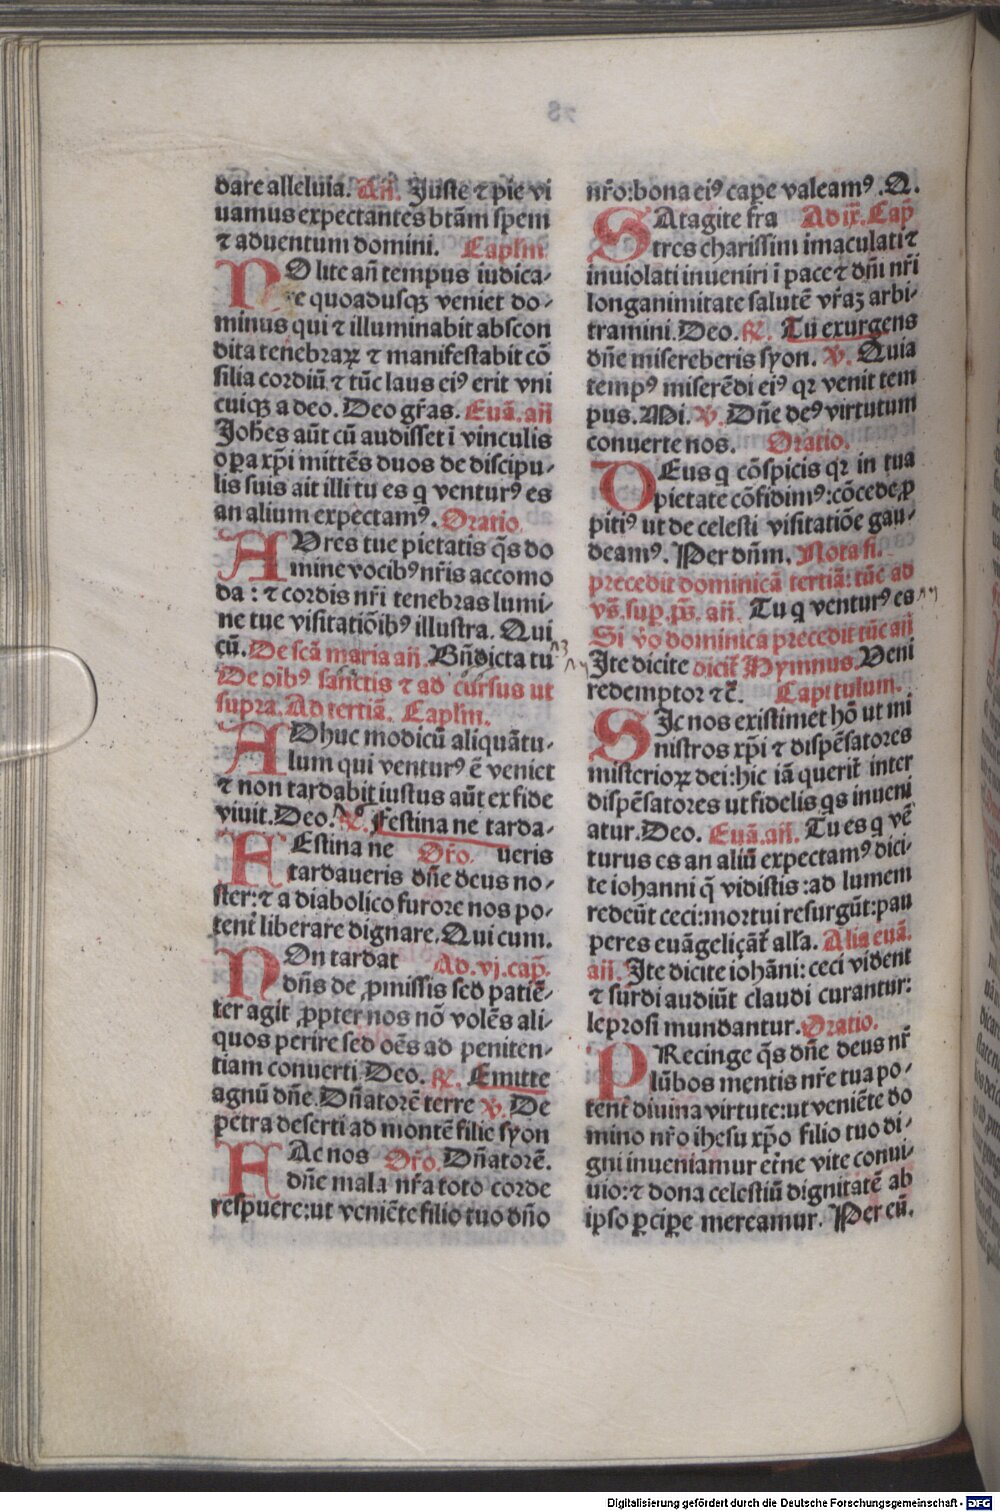 dare alleluia. Añ. Juste ⁊ pie vi
uamus expectantes btãm spem
⁊ aduentum domini. Capl'm
NO lite añ tempus iudica-
re quoadusqꝫ veniet do-
minus qui ⁊ illuminabit abscon
dita tenebraꝝ ⁊ manifestabit cõ
silia cordiũ ⁊ tũc laus eiꝰ erit vni
cuiqꝫ a deo. Deo gr̃as. Euã. añ
Johes aũt cũ audisset ĩ vinculis
oꝑa xp̃i mittẽs duos de discipu-
lis suis ait illi tu es q venturꝰ es
an alium expectamꝰ. Oratio
AUres tue pietatis q̃s do
mine vocibꝰ nr̃is accomo
da : ⁊ cordis nr̃i tenebras lumi-
ne tue visitatiõibꝰ illustra. Qui
cũ. De scã maria añ. Bñdicta tu
De oibꝰ sanctis ⁊ ad cursus ut
supra. Ad tertiã. Capl'm.
ADhuc modicũ aliquãtu-
lum qui venturꝰ ẽ veniet
⁊ non tardabit iustus aũt ex fide
viuit. Deo. ℟. Festina ne tarda-
FEstina ne Or̃o. ueris
tardaueris dñe deus no-
ster: ⁊ a diabolico furore nos po-
tent̃ liberare dignare. Qui cum.
NOn tardat Ad. vj. cap̃.
dñs de ꝓmissis sed patiẽ-
ter agit ꝓpter nos nõ volẽs ali-
quos perire sed oẽs ad peniten-
tiam conuerti Deo. ℟. Emitte
agnũ dñe. Dñatorẽ terre ℣. De
petra deserti ad montẽ filie syon
FAc nos Or̃o. Dñatorẽ.
dñe mala nr̃a toto corde
respuere: ut veniẽte filio tuo dño
nr̃o: bona eiꝰ caꝑe valeamꝰ. Q.
SAtagite fra Ad ix. Cap̃
tres charissimi imaculati ⁊
inuiolati inueniri ĩ pace ⁊ dñi nr̃i
longanimitate salutẽ vr̃aꝫ arbi-
tramini. Deo. ℟. Tu exurgens
dñe misereberis syon. ℣. Quia
tempꝰ miserẽdi eiꝰ qꝛ venit tem
pus. Mi. ℣. Dñe deꝰ virtutum
conuerte nos. Oratio.
DEus q cõspicis qꝛ in tua
pietate cõfidimꝰ: cõcede ꝓ
pitiꝰ ut de celesti visitatiõe gau-
deamꝰ. Per dñm. Nota si.
precedit dominicã tertiã: tũc ad
vs̃. sup. ps̃. añ. Tu q venturꝰ es
Si v̊o dominica precedit tũc añ
Jte dicite dicit̃ Hymnus. Veni
redemptor ⁊ c̃. Capitulum.
SJc nos existimet hõ ut mi
nistros xp̃i ⁊ dispẽsatores
misterioꝝ dei: hic iã querit̃ inter
dispẽsatores ut fidelis qs inueni
atur. Deo. Euã. añ. Tu es q vẽ
turus es an aliũ expectamꝰ dici-
te iohanni q̃ vidistis: ad lumem
redeũt ceci: mortui resurgũt: pau
peres euãgeliçãt̃ all'a. Alia euã.
añ. Jte dicite iohãni: ceci vident
⁊ surdi audiũt claudi curantur:
leprosi mundantur. Oratio.
PRecinge q̃s dñe deus nr̃
lũbos mentis nr̃e tua po-
tent̃ diuina virtute: ut veniẽte do
mino nr̃o ihesu xp̃o filio tuo di-
gni inueniamur et̃ne vite conui-
uio: ⁊ dona celestiũ dignitatẽ ab
ipso ꝑciꝑe mereamur. Per eũ.
Digitalisierung gefördert durch die Deutsche Forschungsgemeinschaft - DFG